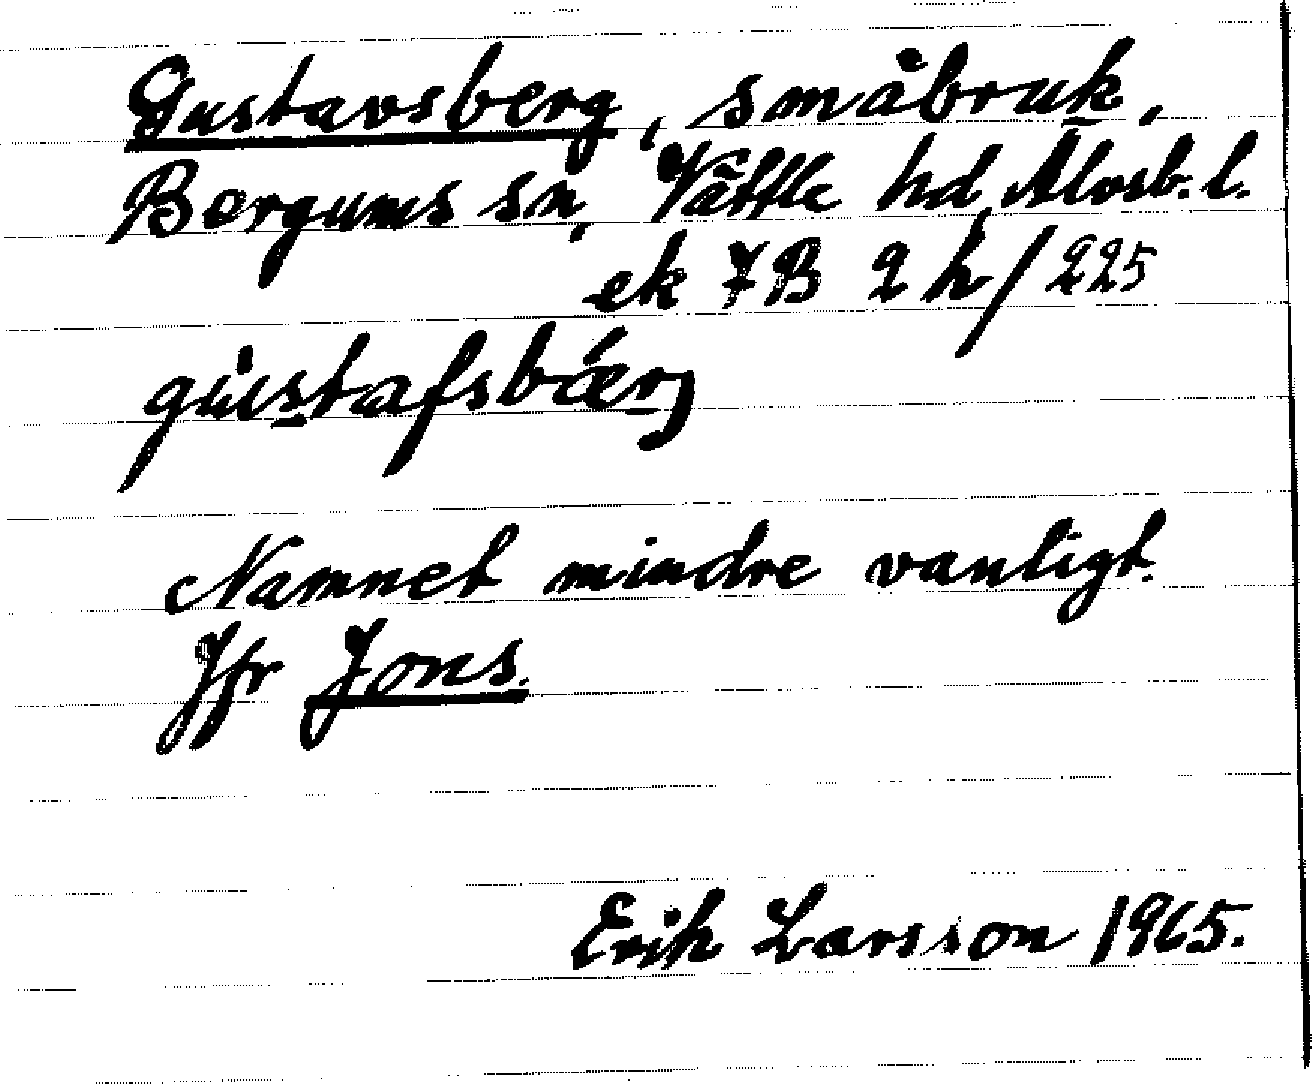 Gustavsberg, småbruk,
Bergums sn, Vättle hd, Älvsb. l.
ek 7B 2h/225
gustafsbǽrj
Namnet mindre vanligt.
Jfr Jons.
Erik Larsson 1965.